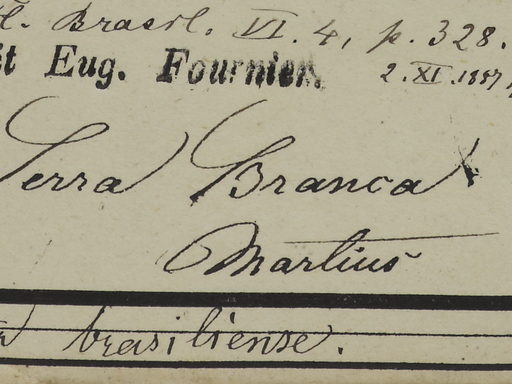 Fl. Brasil. VI. 4, p. 328.
it Eug. Fournier. 2. XI. 1887
Serra Branca
Martius
brasiliense.